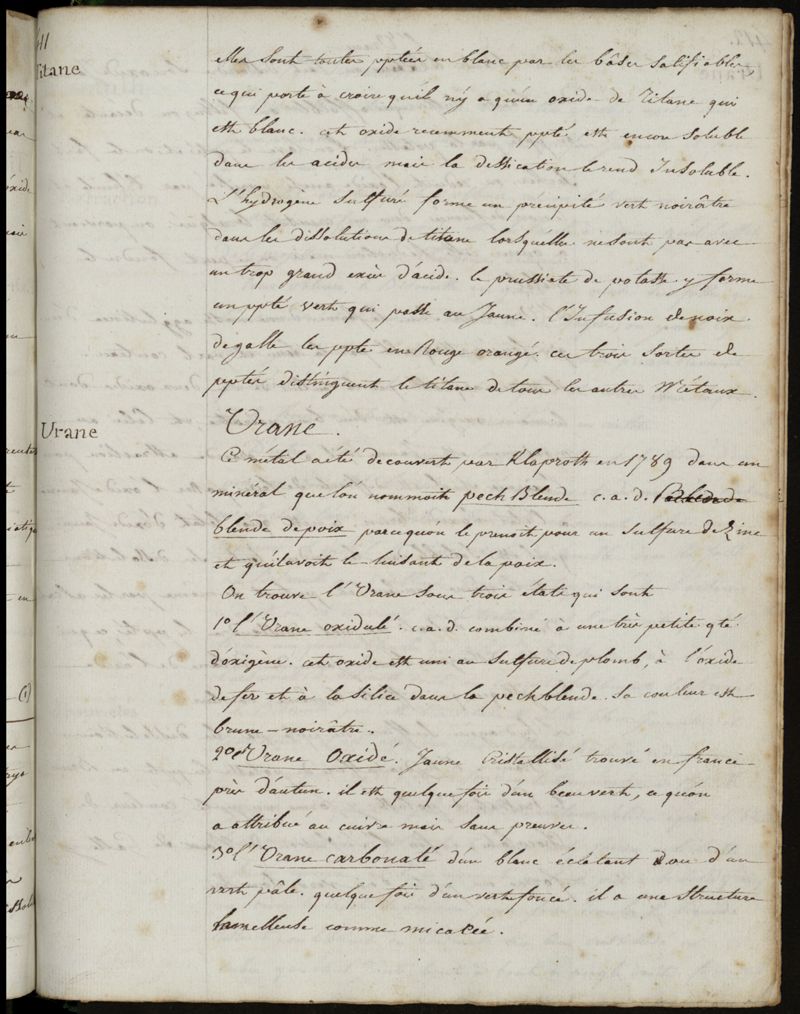 411
Titane
elles sont toutes pptées en blanc par les bâses salifiables
ce qui porte à croire qu'il n'y a qu'un oxide de Titane qui
est blanc. cet oxide recemment ppté est encore soluble
dans les acides mais la dessication le rend Insoluble.
L'hydrogène sulfuré forme un précipité vert noirâtre
dans les dissolutions de titane lorsqu'elles ne sont pas avec
un trop grand excès d'acide. le prussiate de potasse y forme
un ppté vert qui passe au Jaune. l'Infusion de noix
de galle les ppte en Rouge orangé. ces trois sortes de
pptés distinguent le titane de tous les autres Métaux.
Urane
Urane.
Ce métal a été découvert par Klaproth en 1789 dans un
minéral que l'on nommoit pech Blende c.a.d.
blende de poix parcequ'on le prenoit pour un sulfure de Zinc
et qu'il avoit le luisant de la poix.
On trouve l'Urane sous trois états qui sont
1º l'Urane oxidulé. c.a.d. combiné à une très petite qté
d'oxigène. cet oxide est uni au sulfure de plomb, à l'oxide
de fer et à la silice dans la pechblende. sa couleur est
brune-noirâtre.
2º l'Urane Oxidé. Jaune Cristallisé trouvé en france
près d'autun. il est quelque fois d'un beau vert, ce qu'on
a attribué au cuivre mais sans preuves.
3º l'Urane carbonaté d'un blanc éclatant ou d'un
vert pâle. quelque fois d'un vert foncé. il a une structure
lamelleuse comme micacée.